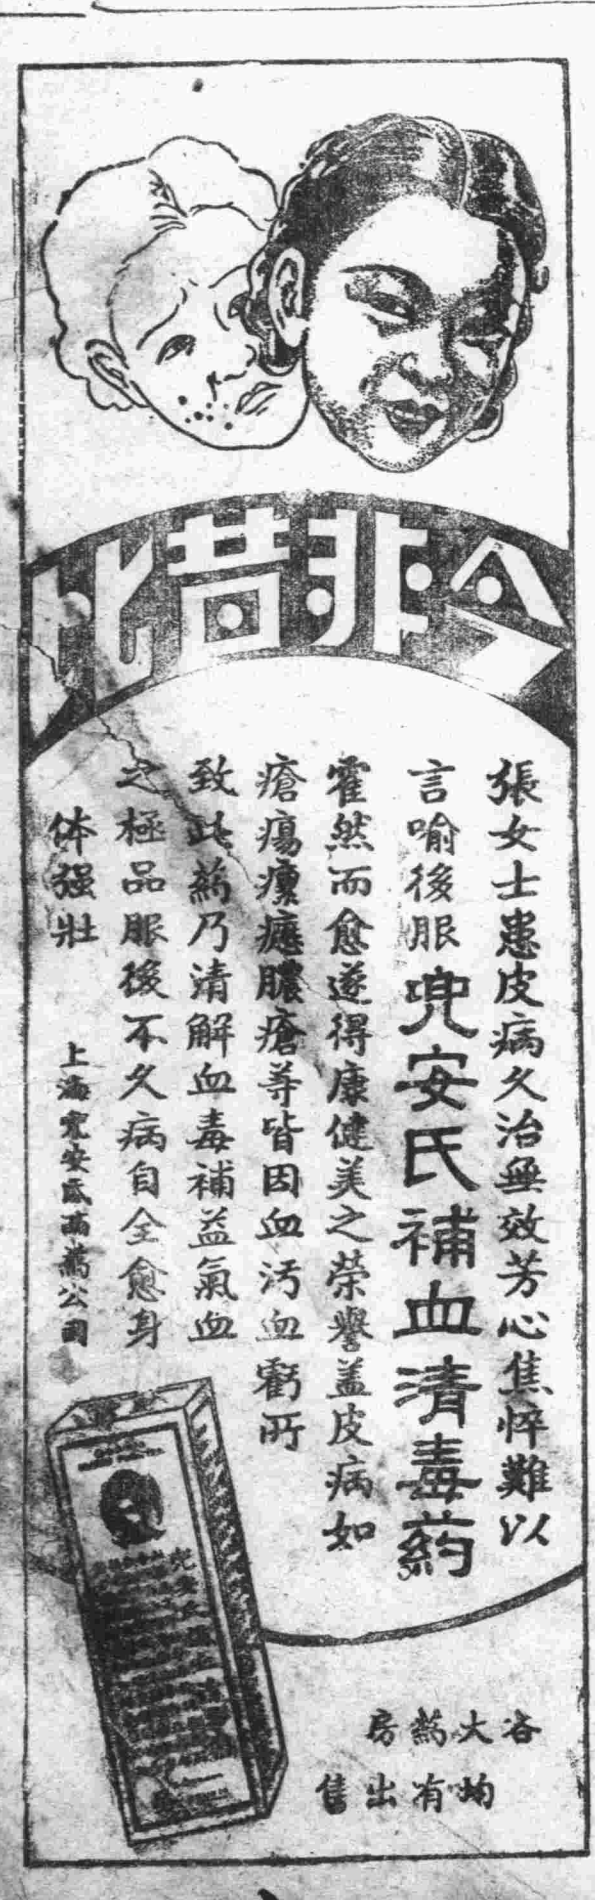 今非昔比
張女士患皮病久治無效芳心焦悴難以
言喻後服兜安氏補血清毒葯
霍然而愈遂得康健美之榮譽蓋皮病如
瘡瘍瘰癧膿瘡等皆因血汚血虧所
致此葯乃清解血毒補益氣血
之極品服後不久病自全愈身
体强壯
上海兜安氏西葯公司
各大葯房
均有出售